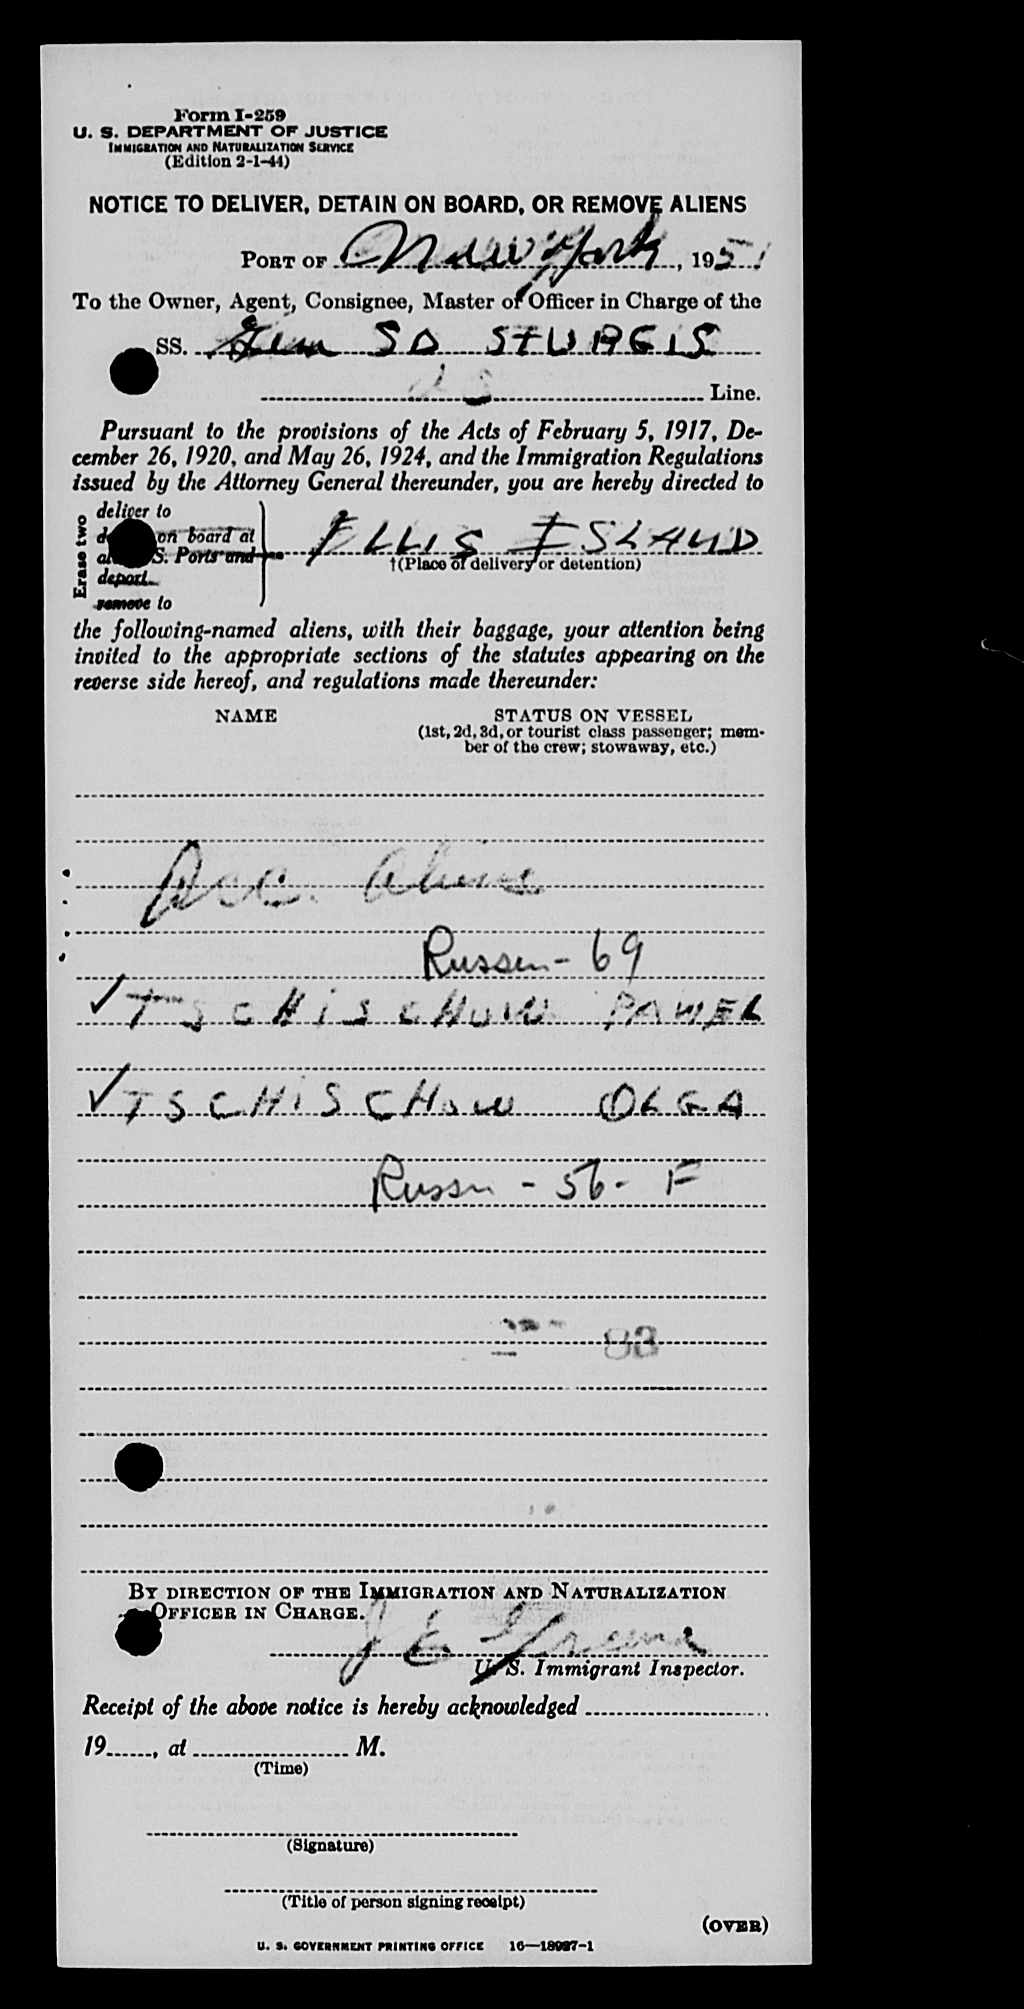 Form I-259
U. S. DEPARTMENT OF JUSTICE
IMMIGRATION AND NATURALIZATION SERVICE
(Edition 2-1-44)
NOTICE TO DELIVER, DETAIN ON BOARD, OR REMOVE ALIENS
PORT OF New York, 1951
To the Owner, Agent, Consignee, Master or Officer in Charge of the
SS. Gen SD STURGIS
Line.
Pursuant to the provisions of the Acts of February 5, 1917, De-
cember 26, 1920, and May 26, 1924, and the Immigration Regulations
issued by the Attorney General thereunder, you are hereby directed to
Erase two
deliver to
on board at
S. Ports and
deport
remove to
ELLIS ISLAND
†(Place of delivery or detention)
the following-named aliens, with their baggage, your attention being
invited to the appropriate sections of the statutes appearing on the
reverse side hereof, and regulations made thereunder:
NAME STATUS ON VESSEL
(1st, 2d, 3d, or tourist class passenger; mem-
ber of the crew; stowaway, etc.)
Russen - 69
✓ TSCHISCHOW PAWEL
✓ TSCHISCHOW OLGA
Russn - 56 - F
83
BY DIRECTION OF THE IMMIGRATION AND NATURALIZATION
OFFICER IN CHARGE.
J E Greene
U. S. Immigrant Inspector.
Receipt of the above notice is hereby acknowledged
19, at M.
(Time)
(Signature)
(Title of person signing receipt)
(OVER)
U. S. GOVERNMENT PRINTING OFFICE 16—18987-1